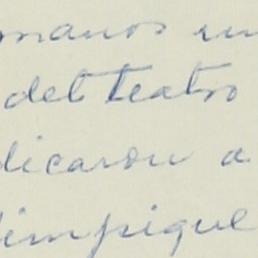 manos en
del teatro
dicaron a
limpique